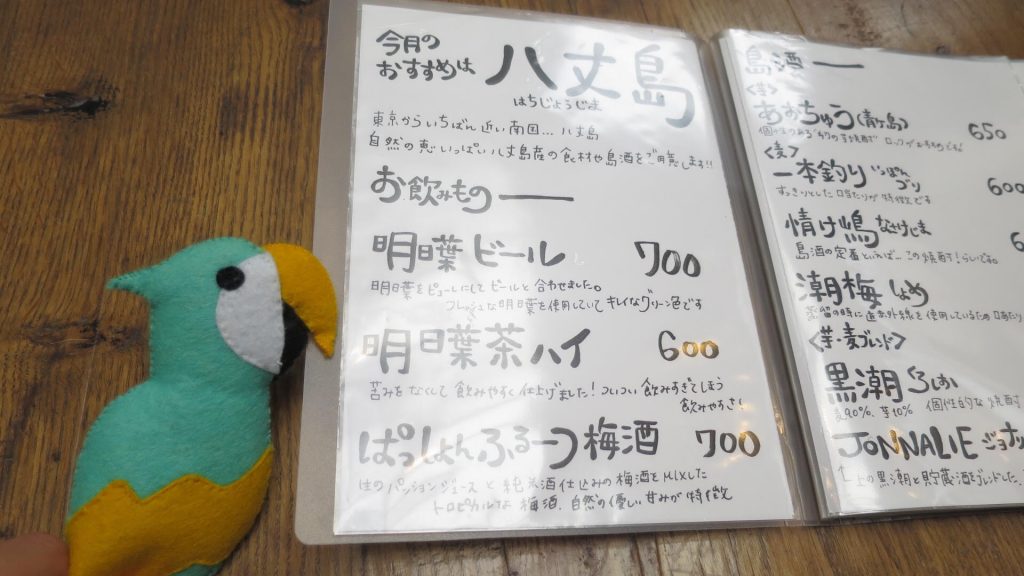 今月の
おすすめは 八丈島
はちじょうじま
東京からいちばん近い南国… 八丈島
自然の恵いっぱい八丈島産の食材や島酒をご用意します!!
お飲みもの
明日葉ビール 700
明日葉をピューレにしてビールと合わせました。
フレッシュな明日葉を使用していてキレイなグリーン色です
明日葉茶ハイ 600
苦みをなくして飲みやすく仕上げました!ついつい飲みすぎてしまう
飲みやすさ!
ぱっしょんふるーつ梅酒 700
生のパッションジュースと純米酒仕込みの梅酒をMIXした
トロピカルな梅酒。自然の優しい甘みが特徴
島酒
<芋>
あおちゅう(青ヶ島) 650
<麦>
一本釣り いっぽんづり 600
すっきりとした口当たりが特徴です
情け嶋 なさけじま 6
島酒の定番といえば… この焼酎!
潮梅 しおうめ
<芋・麦ブレンド>
黒潮 くろしお
麦90%、芋10% 個性的な焼酎
JONNALIE ジョナリ
上の黒潮と貯蔵酒をブレンドした